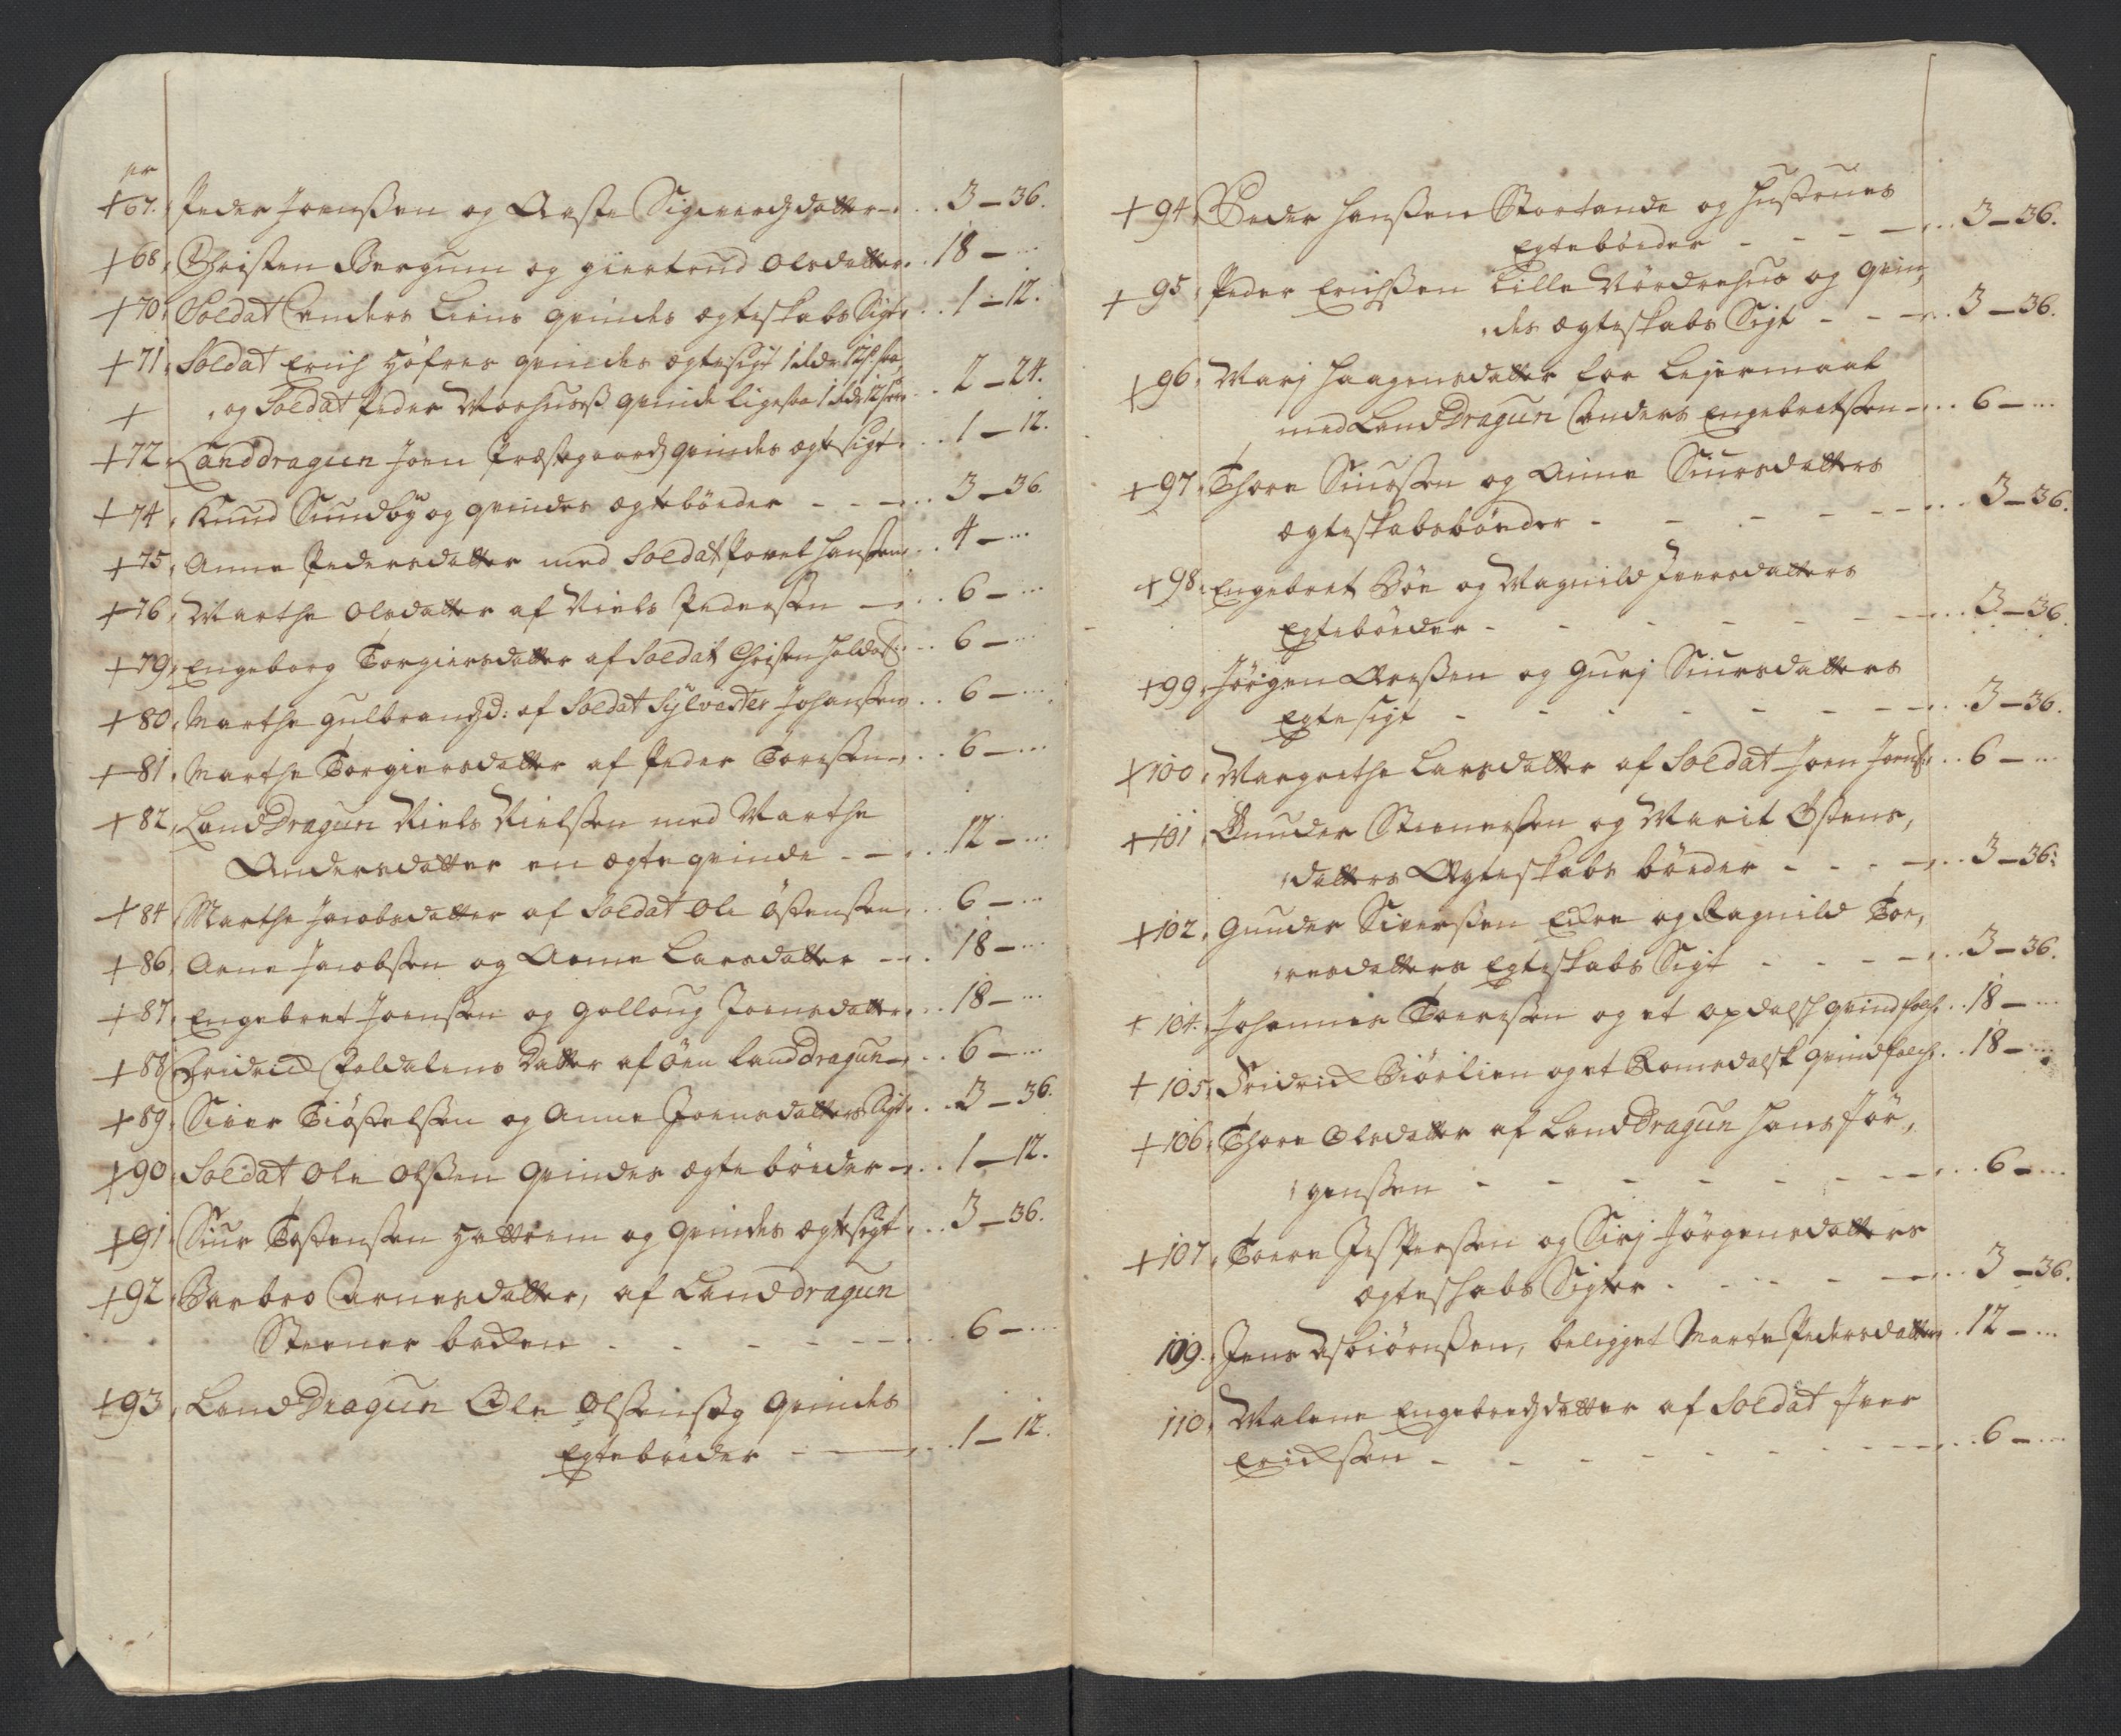 nr
+67. Peder Joenssen og Aaste Sigverdzdatter 3 - 36.
+68. Christen Bergum og giertrud Olsdatter 18 - ...
+70. Soldat Anders Liens qvindes ægteskabs Sigt 1 - 12.
+71. Soldat Erich Høfres qvindes ægtesigt 1 rdr 12 s.
+ og Soldat Peder Morhuuss qvinde ligesaa 1 rdr 12 2 - 24.
+72. Landdragun Joen Præstegaardz qvindes ægtesigt 1 - 12.
+74. Knud Sundbÿ og qvindes ægtebøeder 3 - 36.
+75. Anne Pedersdatter med Soldat Povel Hanssen 4 - ...
+76. Marthe Olsdatter af Niels Pederssen 6 - ...
+79. Engeborg Torgiersdatter af Soldat Christen 6 - ...
+80. Marthe gulbrandzd: af Soldat Sÿlvester Johanssen 6 - ...
+81. Marthe Torgiersdatter af Peder Toressen 6 - ...
+82. Land Dragun Niels Nielssen med Marthe
Andersdatter en ægte qvinde 12 - ...
+84. Marthe Jacobsdatter af Soldat Ole Østenssen 6 - ...
+86. Arne Jacobssen og Anne Larsdatter 18 - ...
+87. Engebret Joenssen og golloug Joensdatter 18 - ...
+88. datter af Øen landdragun 6 - ...
+89. Siver Kiøstelssen og Anne Joensdatters Sigt 3 - 36.
+90. Soldat Ole Olssen qvindes ægte bøeder 1 - 12.
+91. Siur Tostenssen Hattrem og qvindes ægtesigt 3 - 36.
+92. Barbro Arnesdatter, af Landdragun
Steener backen 6 - ...
+93. Land Dragun Ole qvindes
Egtebøeder 1 - 12.
+94. Peder Hanssen og Hustrues
Egtebøeder 3 - 36.
+95. Peder Erichssen Lille Nördrehus og qvin,
des ægteskabs Sigt 3 - 36.
+96. Marj Haagensdatter for Lejermaal
med Land Dragun Anders Engebretssen 6 - ...
+97. Thore Siurssen og Anne Siursdatters
ægteskabsbøeder 3 - 36.
+98. Engebret Bøe og Magnild Iversdatters
Egtebøeder 3 - 36.
+99. Jørgen Aressen og gurj Siursdatters
Egtesigt 3 - 36.
+100. Margrethe Larsdatter af Soldat Joen Joenss: 6 - ...
+101. Gunder Steenerssen og Marit Østens,
datters Ægteskabs bøeder 3 - 36.
+102. Gunder Siverssen og Ragnild Tor,
resdatters Egteskabs Sigt 3 - 36.
+104. Johannes Toressen og et opdalsk qvindfolch 18 - ...
+105. Fridrick Biørlien og et Romsdalsk qvindfolch 18 - ...
+106. Thore Olsdatter af Land Dragun Hans Jør,
genssen 6 - ...
+107. Toere Jesperssen og Sirj Jørgensdatters
ægteskabs Sigter 3 - 36.
109. Jens Esbiørnssen, beligget Marte Pedersdatter 12 - ...
110. Malene Engebredzdatter af Soldat Iver
Erickssen 6 - ...